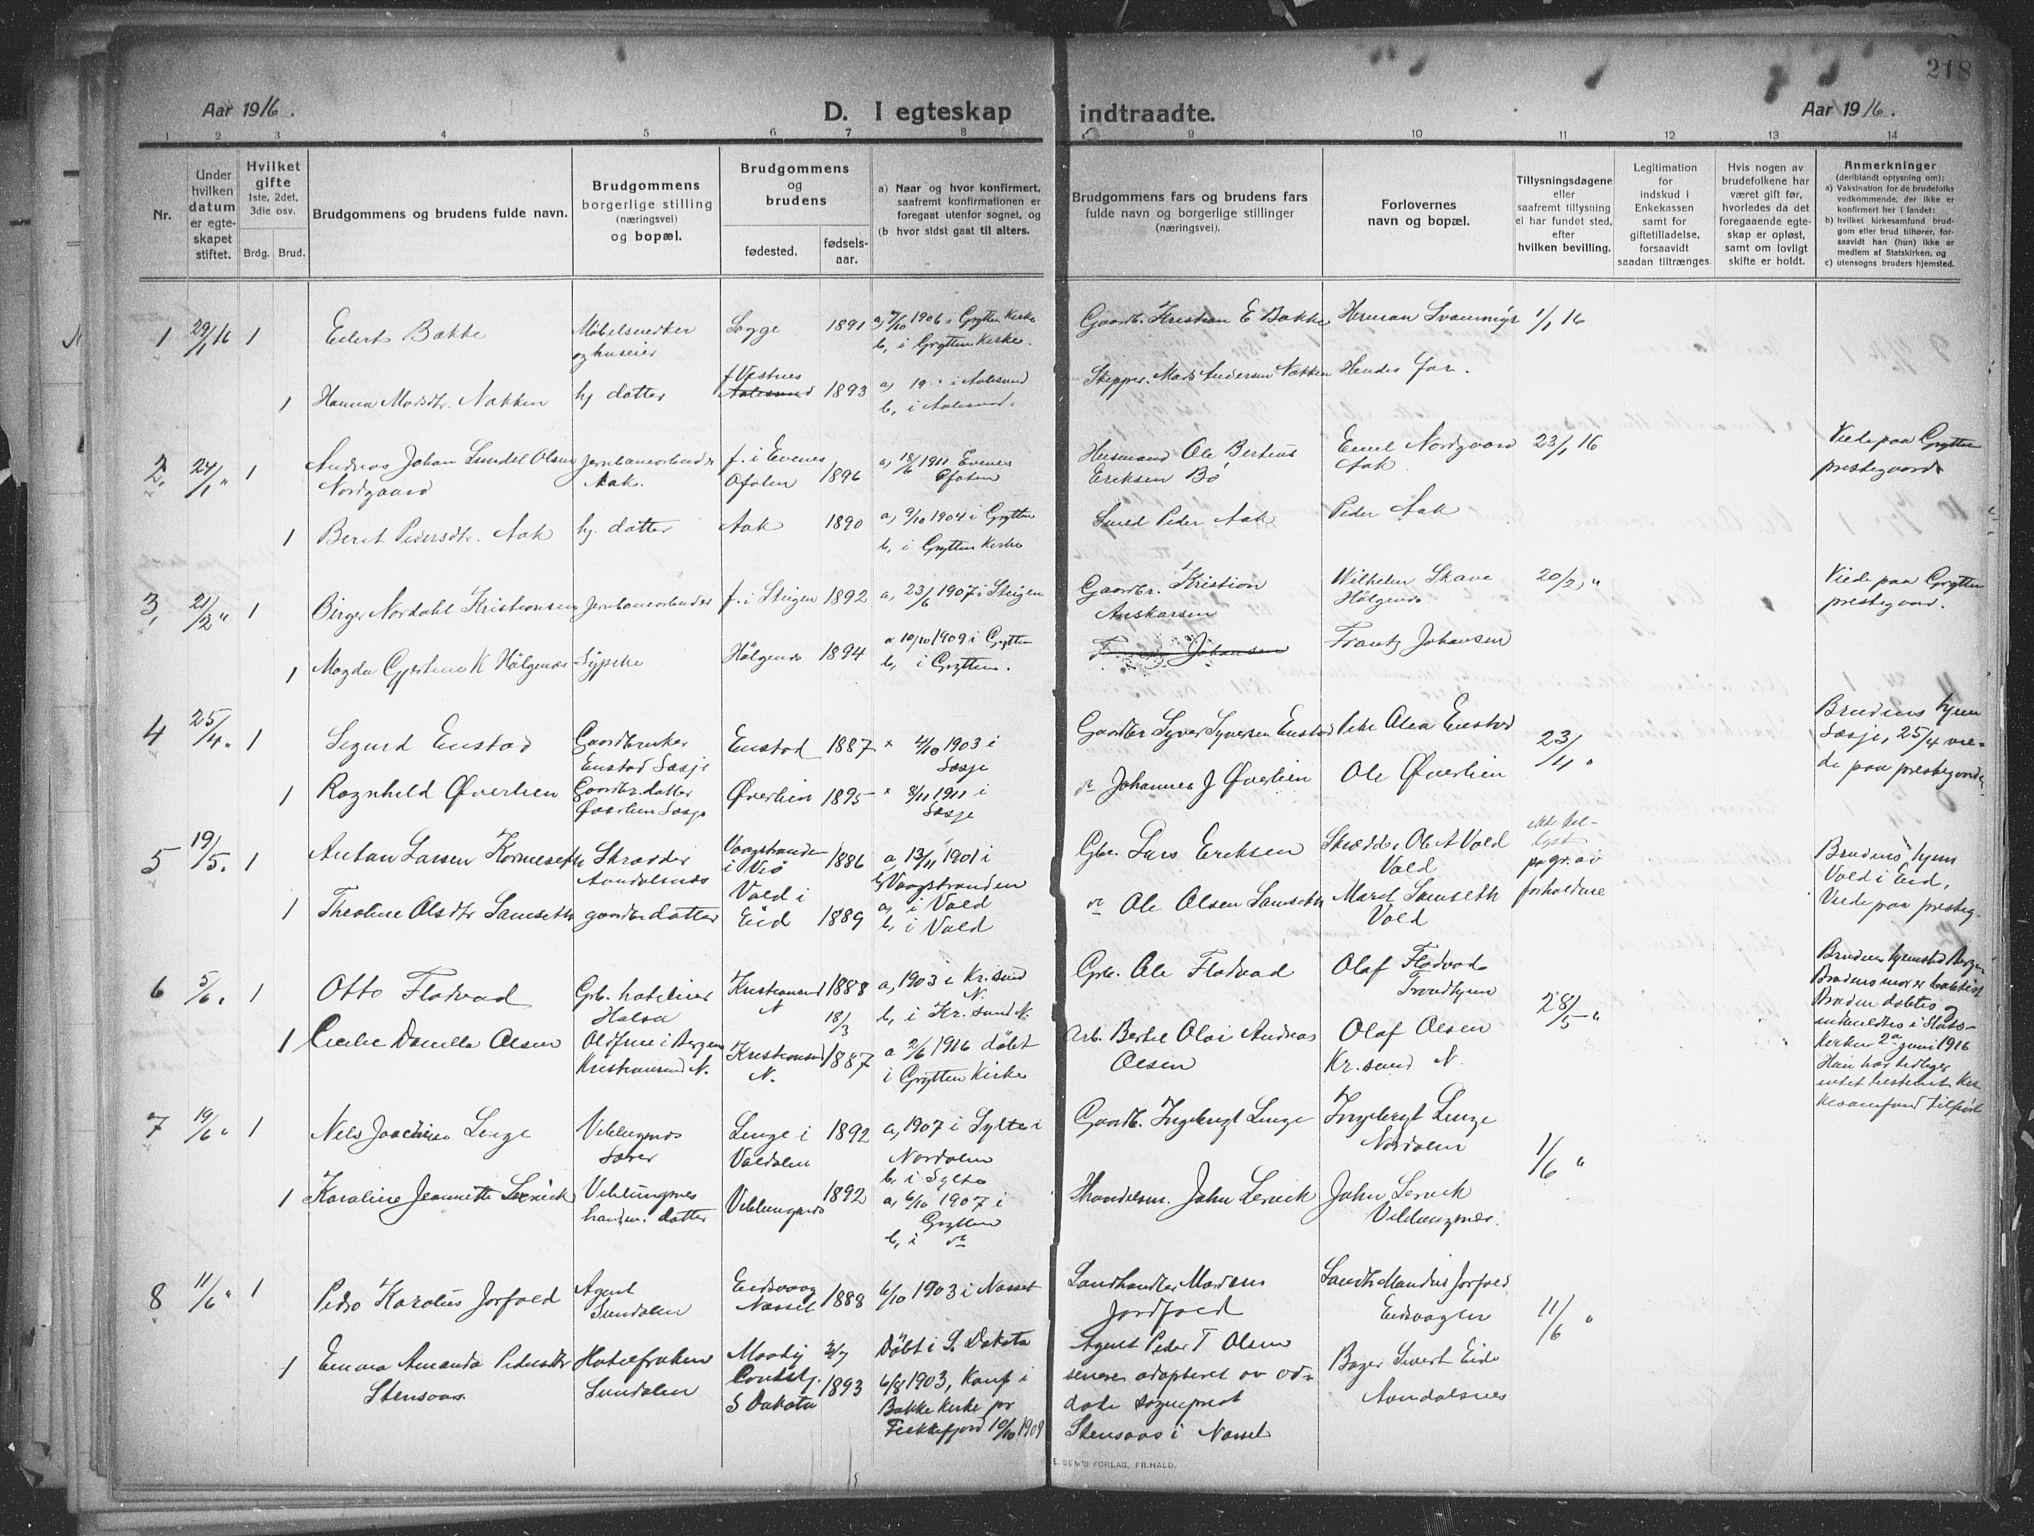 218
Aar 1916.
D. I egteskap indtraadte.
Aar 1916.
1 2 3 4 5 6 7 8 9 10 11 12 13 14
Nr.
Under hvilken datum er egteskapet stiftet.
Hvilket gifte 1ste, 2det, 3die osv.
Brdg. Brud.
Brudgommens og brudens fulde navn.
Brudgommens borgerlige stilling (næringsvei) og bopæl.
Brudgommens og brudens
fødested. fødsels-aar.
a) Naar og hvor konfirmert, saafremt konfirmationen er foregaat utenfor sognet, og
(b hvor sidst gaat til alters.
Brudgommens fars og brudens fars fulde navn og borgerlige stillinger (næringsvei).
Forlovernes navn og bopæl.
Tillysningsdagene eller saafremt tillysning ei har fundet sted, efter hvilken bevilling.
Legitimation for indskud i Enkekassen samt for giftetilladelse, forsaavidt saadan tiltrænges.
Hvis nogen av brudefolkene har været gift før, hvorledes da det foregaaende egteskap er opløst, samt om lovligt skifte er holdt.
Anmerkninger (deriblandt opjysning om):
a) Vaksination for de brudefolks vedkommende, der ikke er konfirmert her i landet:
b) hvilket kirkesamfund brudgom eller brud tilhører, forsaavidt han (hun) ikke er medlem af Statskirken, og
c) utensogns bruders hjemsted.
1 29/1 16 1 Eilert Bakke Møbelsnedker og huseier Sogge 1891 a, 1906 i Grytten Kirke b, i Grytten Kirke. Gaardb. Kristian E Bakke Herman Svanmyr 1/1 16
1 Hanna Madsdtr. Nakken hj. datter f Vestnes Aalesund 1893 a, 19 i Aalesund b, i Aalesund. Skipper. Mads Andersen Nakken Hendes far.
2, 24/1 " 1 Andreas Johan Lundel Olsen Nordgaard Jernbanearbeider Aak. f. i Evenes Ofoten 1896 a, 18/6 1911 Evenes Ofoten Husmand Ole Berteus Eriksen Bø Emil Nordgaard Aak 23/1 16 Viede paa Grytten prestegaard
1 Berit Pedersdtr. Aak hj. datter Aak 1890 a, 9/10 1904 i Grytten b, i Grytten Kirke Smed Peder Aak Peder Aak
3, 21/2 " 1 Birger Nordahl Kristiansen Jernbanearbeider f. i Steigen 1892 a, 23/6 1907 i Steigen Gaardbr. Kristian Anskarsen Wilhelm Skave Hølgenes 20/2, " Viede paa Grytten prestegaard.
1 Magda Gjertine K Hølgenes Sypike Hølgenes 1894 a 10/10 1909 i Grytten b, i Grytten. Johansen Frantz Johansen
4 25/4. 1 Sigurd Enstad Gaardbruker Enstad Lesje Enstad 1887 " 4/10 1903 i Lesje Gaardbr Syver Syversen Enstad Peder Olea Enstad 23/4 " Brudens hjem Lesje, 25/4 viede paa prestegaarden
1 Ragnhild Øverlien Gaardbr. datter Øverlien Lesje Øverlien 1895 " 8/11 1911 i Lesje do Johannes J Øverlien Ole Øverlien
5 19/5. 1 Anton Larsen Korneseth Skrædder Aandalsnes Vaagstranden i Veø 1886 a, 13/11 1901 i b, Vaagstranden Gbr. Lars Eriksen Skrædder Ole A Vold Vold ikke tillyst pa gr. av forholdene Brudens hjem Vold i Eid, Viede paa presteg.
1 Theoline Olsdtr Samseth gaardbr datter Vold i Eid 1889 a, i Vold b, i Vold do Ole Olsen Samseth Marit Samseth Vold
6 5/6. 1 Otto Flodvad Grb. hoteleier Halsa Kristiansund N 1888 a, 1903 i Kr. sund N. b, i Kr. sund N. Grb. Ole Flodvad Olaf Flodvad Trondhjem 28/5 " Brudens hjemsted Bergen Brudens mor er baktist Bruden døbtes og indmeldtes i Statskirken 2den juni 1916 Hun har tidligere intet bestemt Kirkesamfund tilhørt
1 Cecilie Danille Olsen Oldfrue i Bergen Kristiansund N. Kristiansund N. 18/3 1887 a 2/6 1916 døbt i Grytten Kirke Arb. Bertel Olai Andreas Olsen Olaf Olsen Kr. sund N.
7 19/6 " 1 Nils Joachim Linge Veblungsnes Lærer Linge i Valdalen 1892 a, 1907 i Sylte i Nordalen b, i Sylte Gaardb. Ingebrigt Linge Ingebrigt Linge Nordalen 1/6 "
1 Karoline Jeannette Lervik Veblungsnes handm. datter Veblungsnes 1892 a, 6/10 1907 i Grytten b, i do Handelsm. John Lervik John Lervik Veblungsnes.
8 11/6 " 1 Peder Karolus Jorfald Agent Sundalen Eidsvaag Nesset 1888 6/10 1903 i Nesset Landhandler Mardeus Jordfald Landh. Mandeus Jorfald Eidsvaagen 11/6 "
1 Emma Amanda Pedersdtr Stensaas Hotelfrøken Sundalen Moody County. S Dakota 2/7 1893 Døbt i S. Dakota 6/8 1903, Konf i Bakke Kirke pr Flekkefjord 10/10 1909 Agent Peder T Olsen senere adopteret av avdøde sogneprest Stensaas i Nesset Bager Sivert Eide Aandalsnes
E. SEM'S FORLAG, FR.HALD.